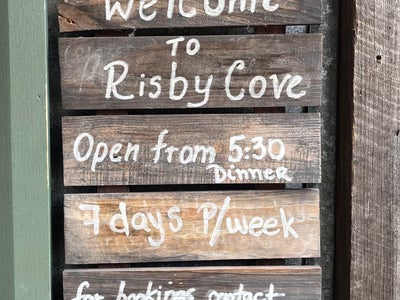 Welcome
TO
Risby Cove
Open from 5:30
Dinner
7 days P/week
for bookings contact